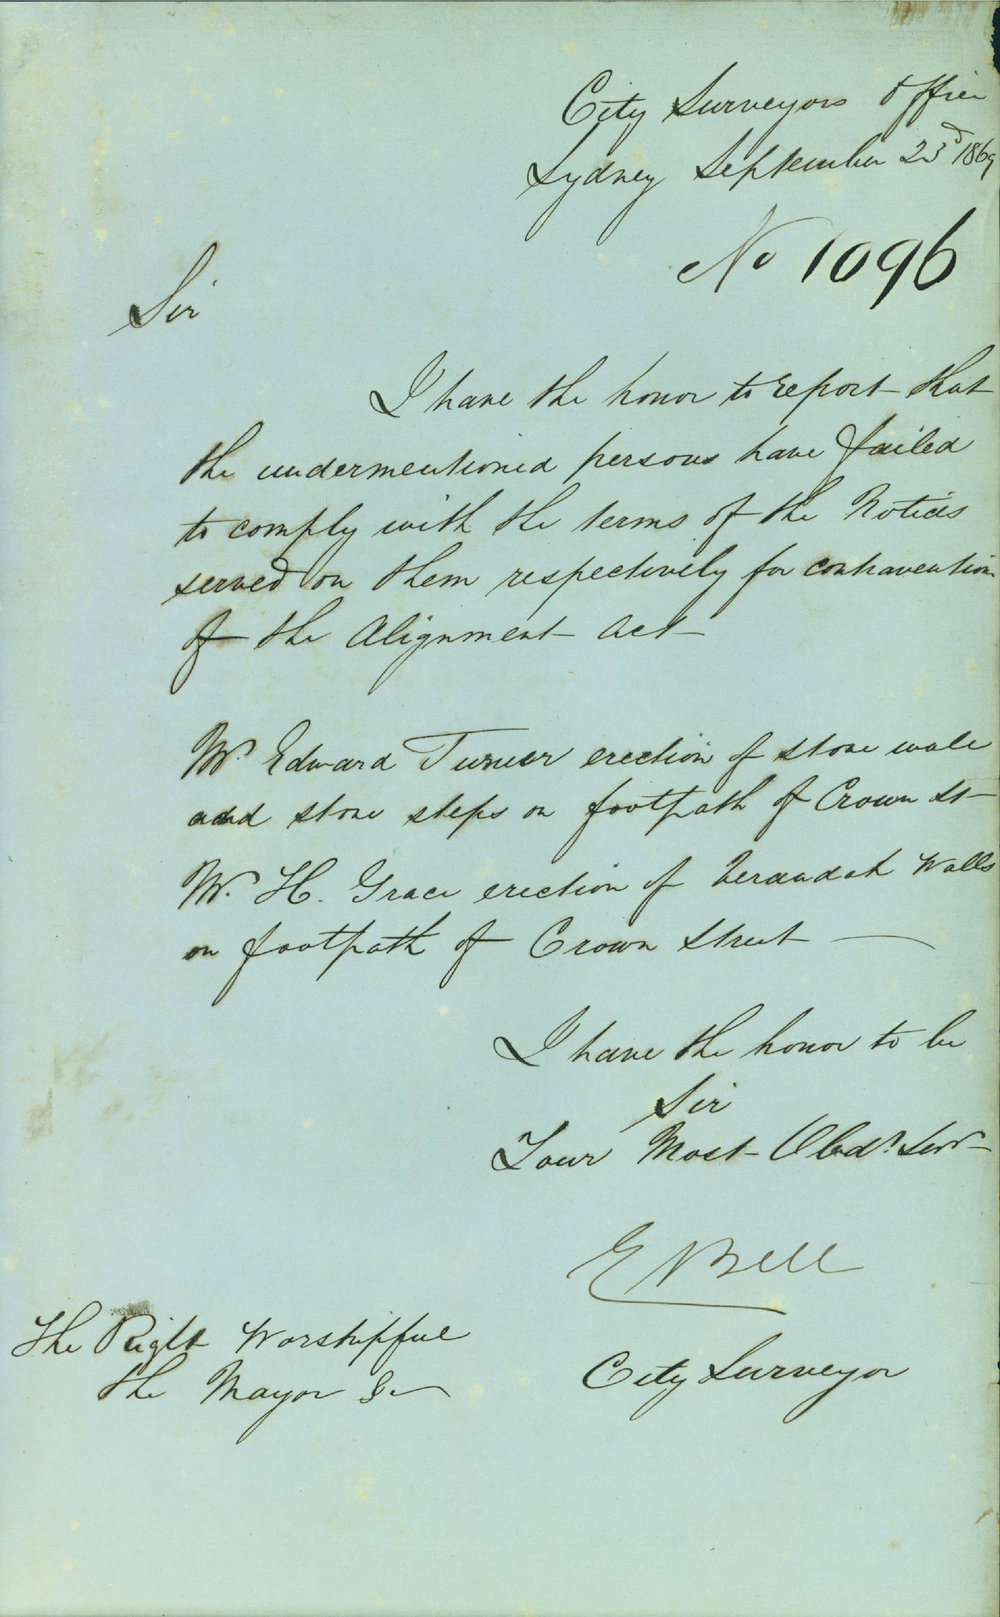 City Surveyors Office
Sydney September 23d 1869
No 1096
Sir
I have the honor to report that
the undermentioned persons have failed
to comply with the terms of the Notices
served on them respectively for contravention
of the Alignment Act
Mr. Edward Turner erection of stone wall
and stone steps on footpath of Crown St
Mr. H. Grace erection of Verandah Walls
on footpath of Crown Street
I have the honor to be
Sir
Your Most Obdt Servt
E Bell
City Surveyor
The Right Worshipful
the Mayor &c